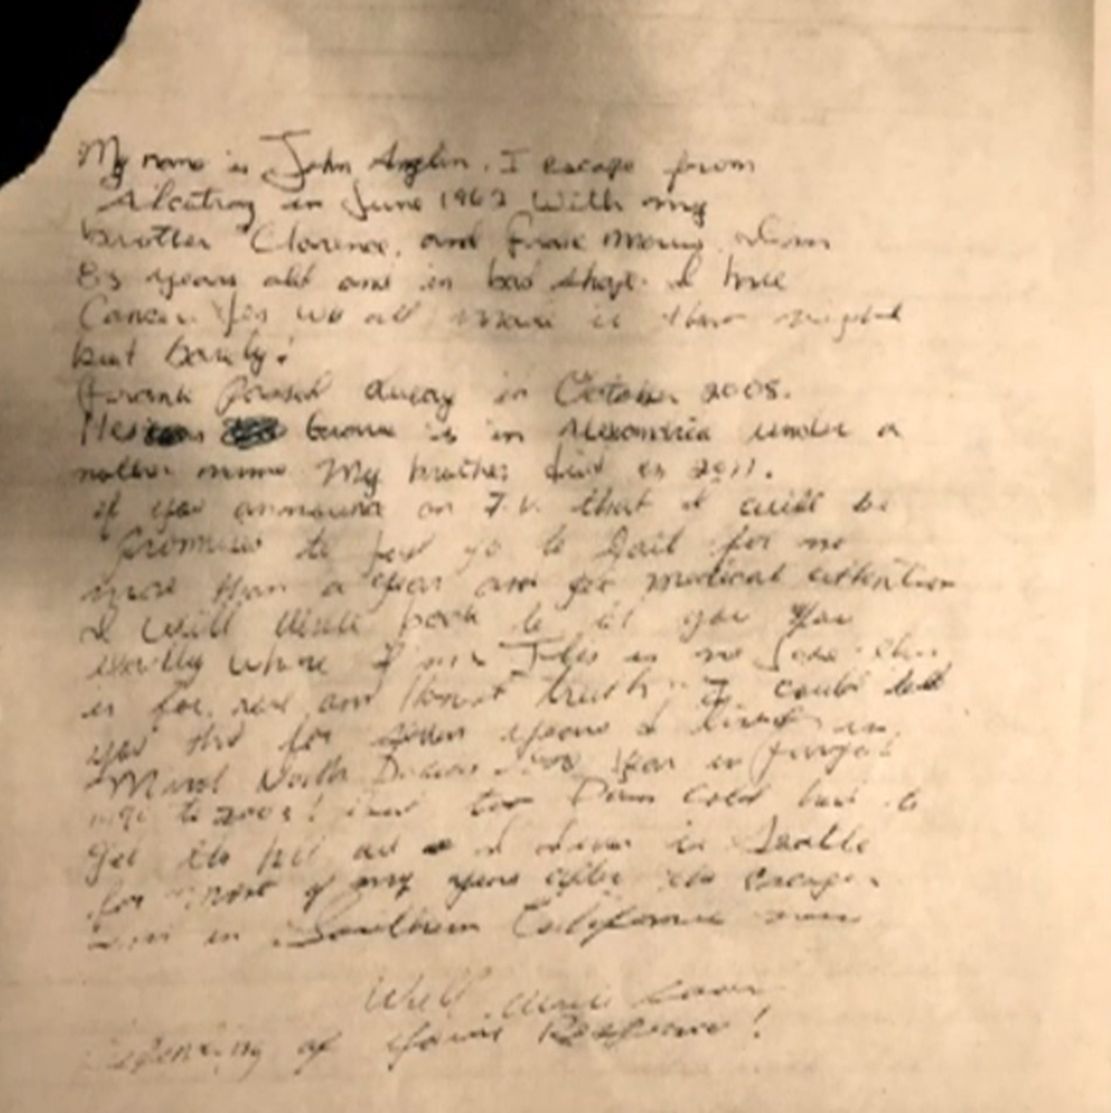 My name is John Anglin. I escape from
Alcatraz in June 1962 With my
brother Clarence, and Frank Morris. I'm
83 years old and in bad shape. I have
Cancer. Yes we all made it that night
but barely!
Frank passed away in October 2008.
His grave is in Alexandria under a
nother name. My brother died in 2011.
if you announce on T.V. that I will be
promised to first go to jail for no
more than a year and get medical attention
I will write back to let you you
exactly where I am This is no joke this
is for real and honest truth. I could tell
you that for seven years I lived in
Minot North Dakota year in fargo
to 2003!
for most of my years after the escape.
in Southern California now
Will write soon
of your Response!